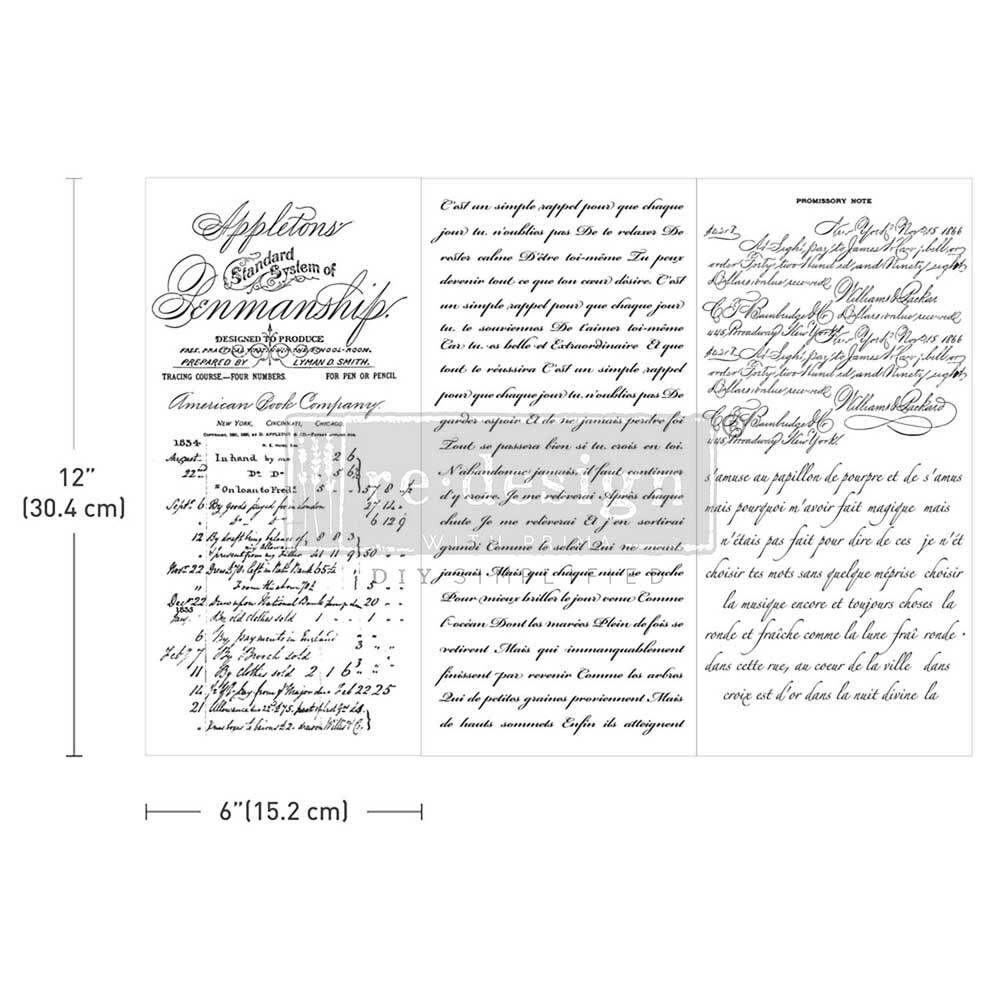 Appletons'
Standard
System of
Penmanship.
DESIGNED TO PRODUCE
PREPARED BY LYMAN D. SMITH.
TRACING COURSE—FOUR NUMBERS. FOR PEN OR PENCIL
American Book Company.
NEW YORK, CINCINNATI, CHICAGO.
1834
August In hand by me 2 6
22nd Do Do 5 6
"On loan to Fred. 5 57 8
Sept. 6 By goods payed for in London 27 14
6 12 9
12 By draft being balance of 8 8 3
"present from my Father 21 11 9 50
Nov. 22
From the above 5
Decr 22 Drew upon National Bank 20
1835
Jany. By old clothes sold 1 1
6 By payments in England 3
Feb 7 7 By Brooch sold 3
11 By clothes sold 2 1 6 3
14 Feb 22 25
21
C'est un simple rappel pour que chaque
jour tu n'oublies pas De te relaxer De
rester calme D'être toi-même Tu peux
devenir tout ce que ton cœur désire. C'est
un simple rappel pour que chaque jour
tu te souviennes De t'aimer toi-même
Car tu es belle et Extraordinaire Et que
tout te réussira C'est un simple rappel
pour que chaque jour tu n'oublies pas De
garder espoir Et de ne jamais perdre foi
Tout se passera bien si tu crois en toi.
N'abandonne jamais, il faut continuer
d'y croire. Je me relèverai Après chaque
chute Je me relèverai Et j'en sortirai
grandi Comme le soleil Qui ne meurt
jamais Mais qui chaque nuit se couche
Pour mieux briller le jour venu Comme
l'océan Dont les marées Plein de fois se
retirent Mais qui immanquablement
finissent par revenir Comme les arbres
Qui de petites graines proviennent Mais
de hauts sommets Enfin ils atteignent
PROMISSORY NOTE
New York Nov 15 1866
At Sight, pay to James W Carr, bell or
order Forty two Hundred, and Ninety eight
Dollars value received
Williams & Packard
C F Bainbridge & Co Dollars value received
445 Broadway New York New York Nov 15 1866
At Sight, pay to James W Carr, bell or
order Forty two Hundred, and Ninety eight
Dollars value received
Williams & Packard
C F Bainbridge & Co
445 Broadway New York
s'amuse au papillon de pourpre et de s'amus
mais pourquoi m'avoir fait magique mais
n'étais pas fait pour dire de ces je n'ét
choisir tes mots sans quelque méprise choisir
la musique encore et toujours choses la
ronde et fraîche comme la lune fraî ronde
dans cette rue, au coeur de la ville dans
croix est d'or dans la nuit divine la
re·design
WITH PRIMA
DIY SIMPLIFIED
12”
(30.4 cm)
6”(15.2 cm)